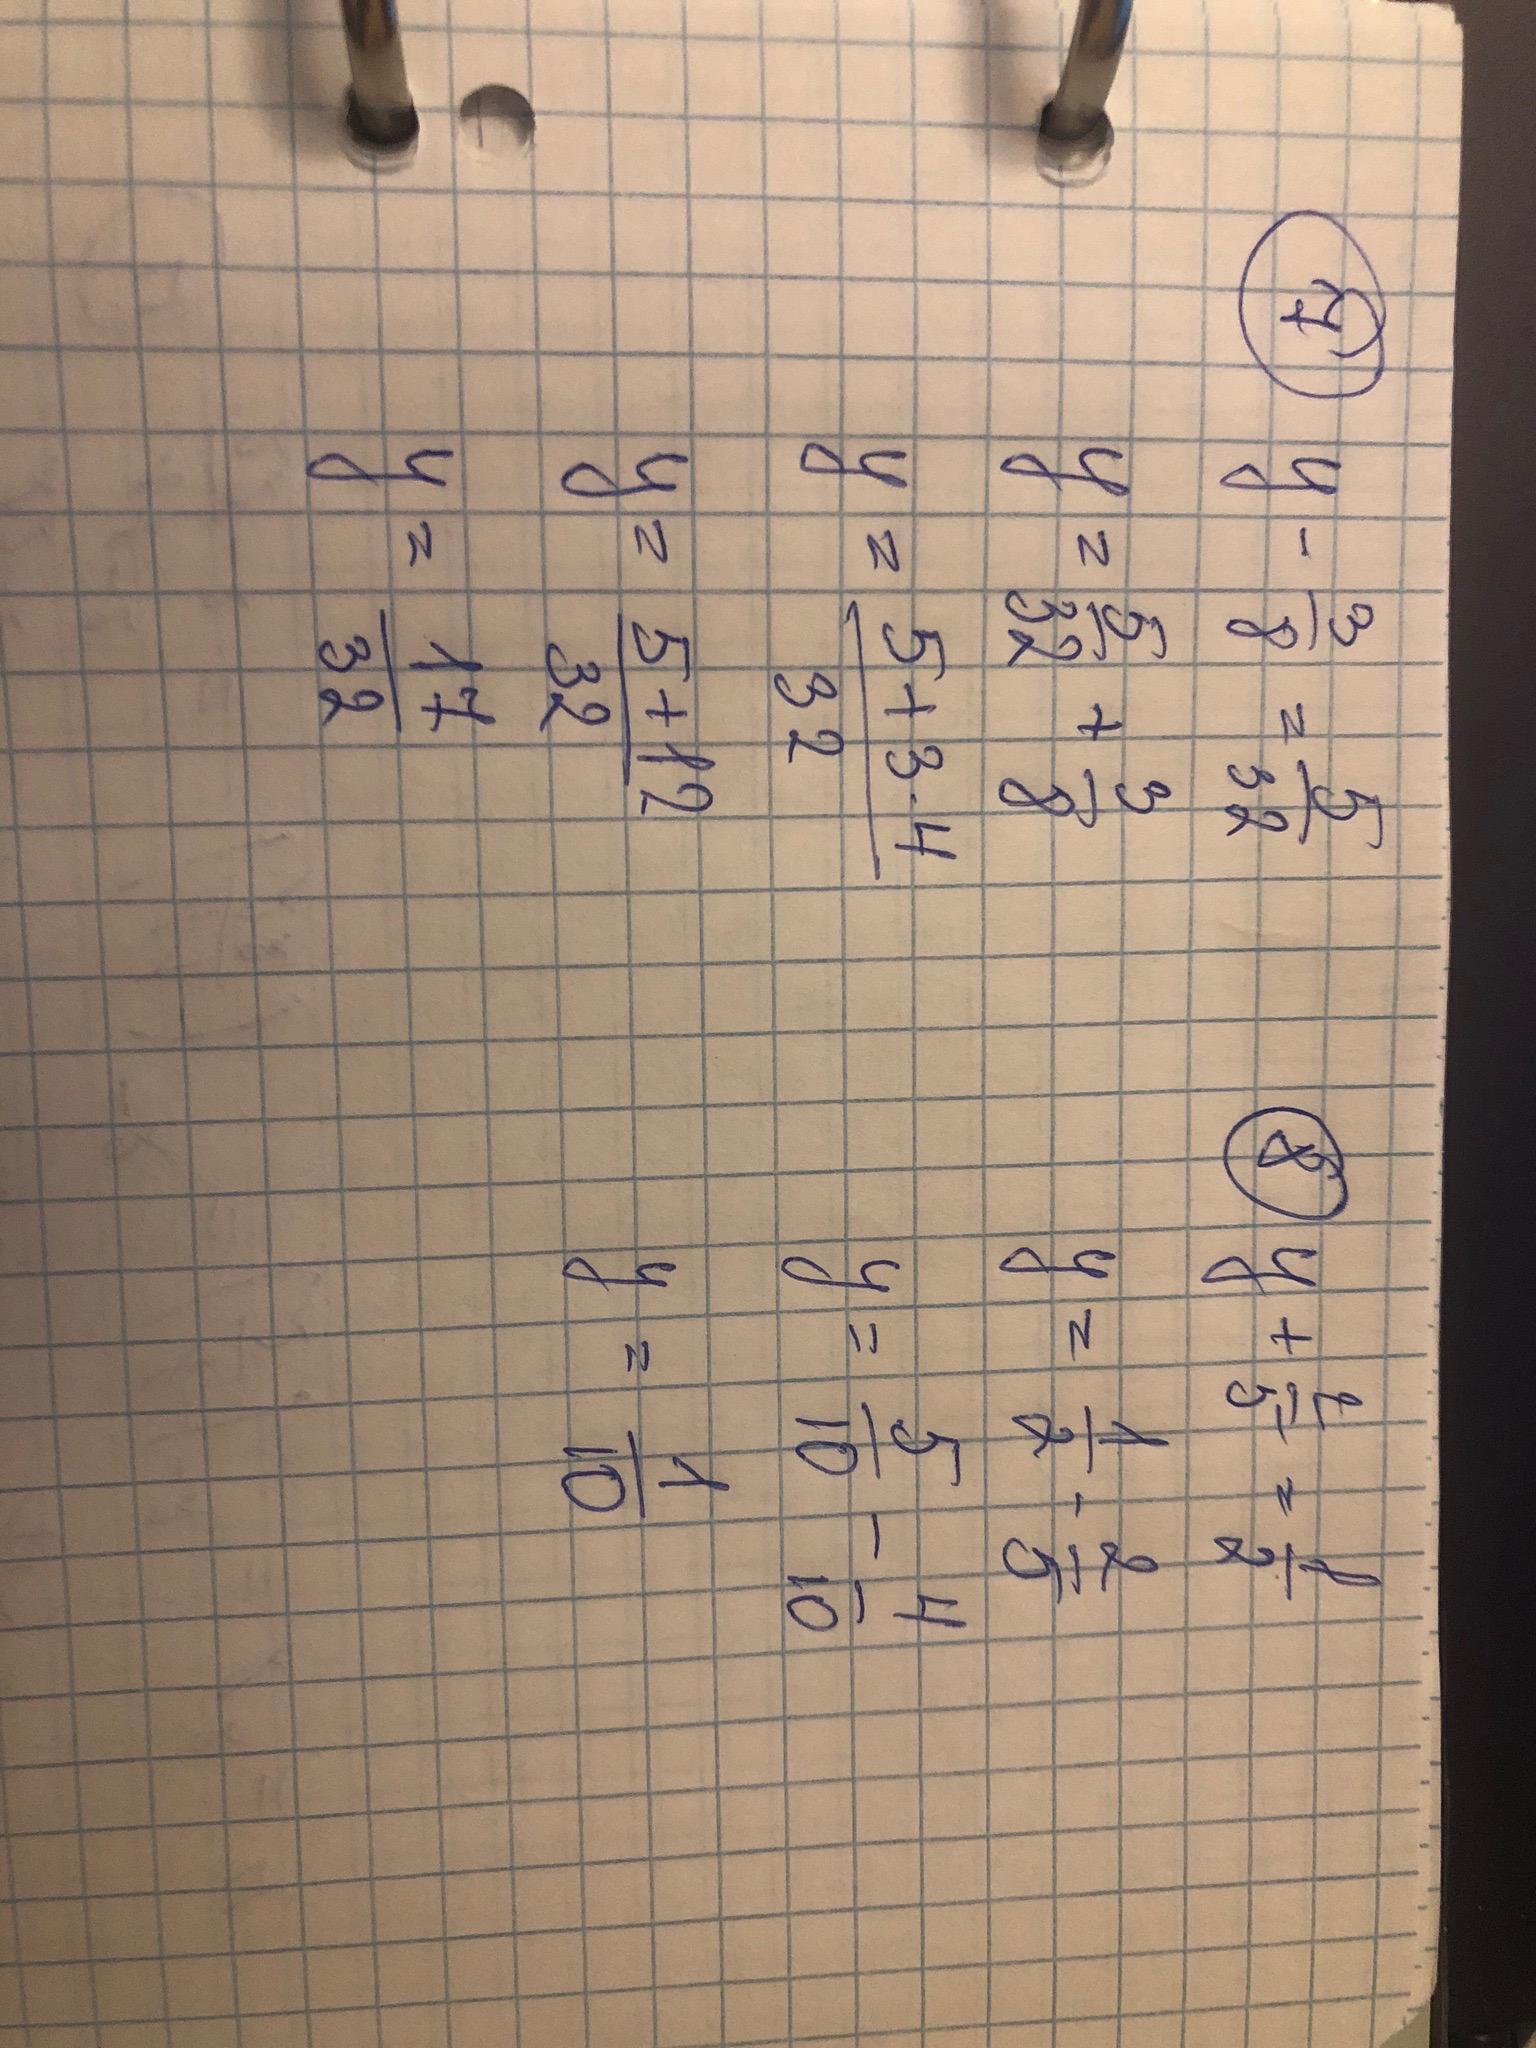 7 y - 3/8 = 5/32
y = 5/32 + 3/8
y = (5+3·4)/32
y = (5+12)/32
y = 17/32
8 y + 2/5 = 1/2
y = 1/2 - 2/5
y = 5/10 - 4/10
y = 1/10